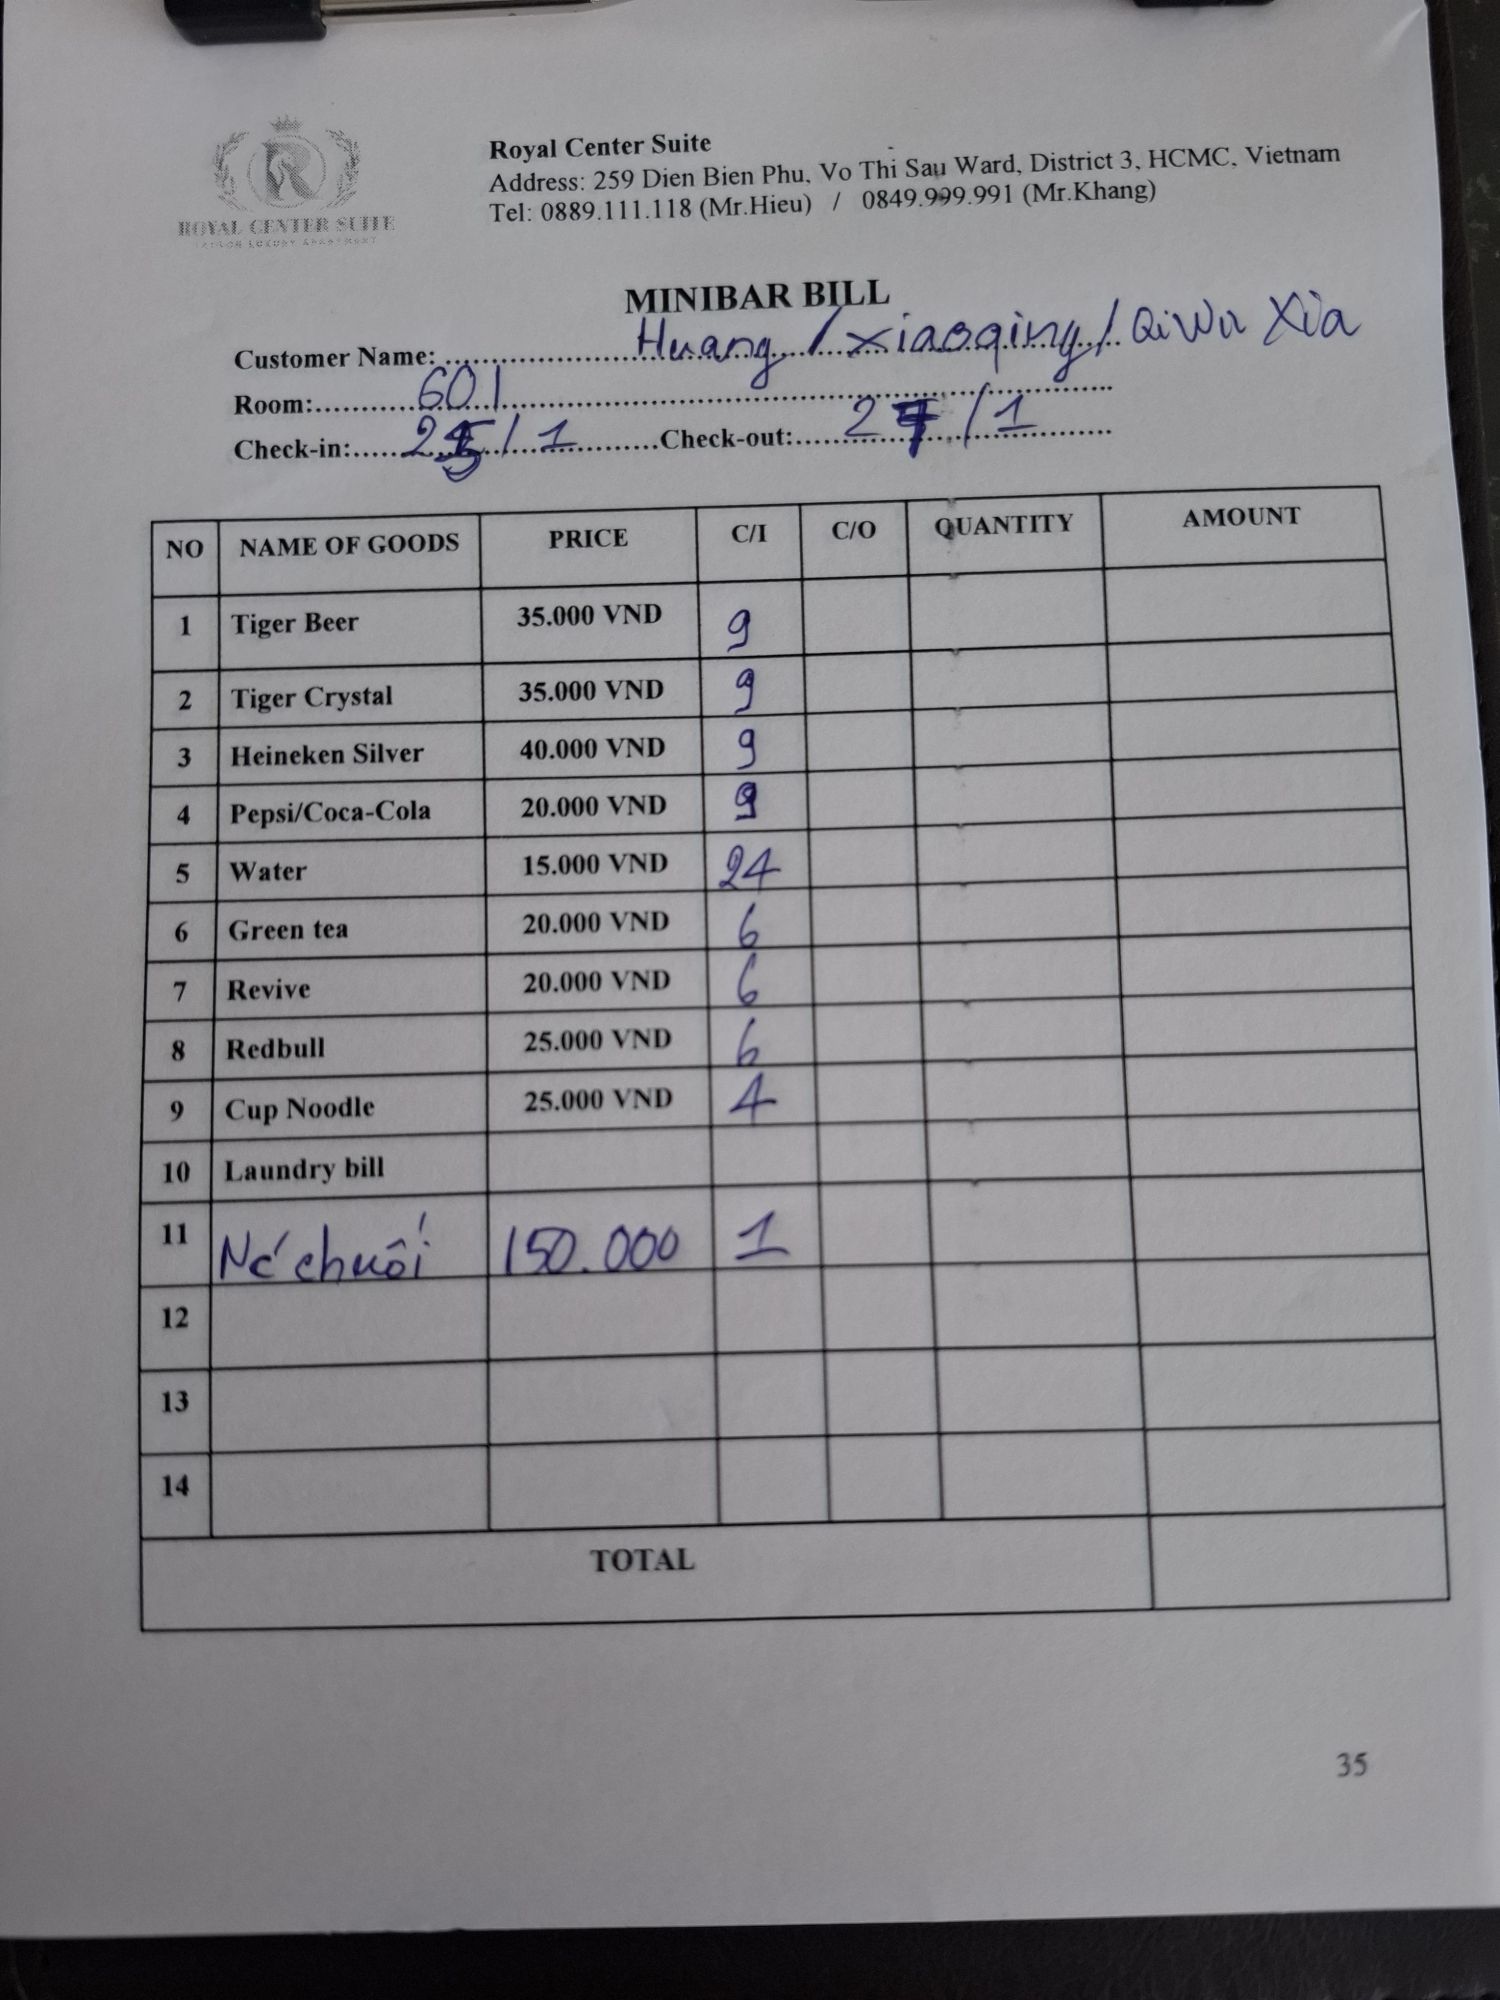 ROYAL CENTER SUITE
Royal Center Suite
Address: 259 Dien Bien Phu, Vo Thi Sau Ward, District 3, HCMC, Vietnam
Tel: 0889.111.118 (Mr.Hieu) / 0849.999.991 (Mr.Khang)
MINIBAR BILL
Customer Name: Huang / xiaoqing / QiWu Xia
Room: 601
Check-in: 25/1 Check-out: 27/1
NO NAME OF GOODS PRICE C/I C/O QUANTITY AMOUNT
1 Tiger Beer 35.000 VND 9
2 Tiger Crystal 35.000 VND 9
3 Heineken Silver 40.000 VND 9
4 Pepsi/Coca-Cola 20.000 VND 9
5 Water 15.000 VND 24
6 Green tea 20.000 VND 6
7 Revive 20.000 VND 6
8 Redbull 25.000 VND 6
9 Cup Noodle 25.000 VND 4
10 Laundry bill
11 chuối 150.000 1
12
13
14
TOTAL
35